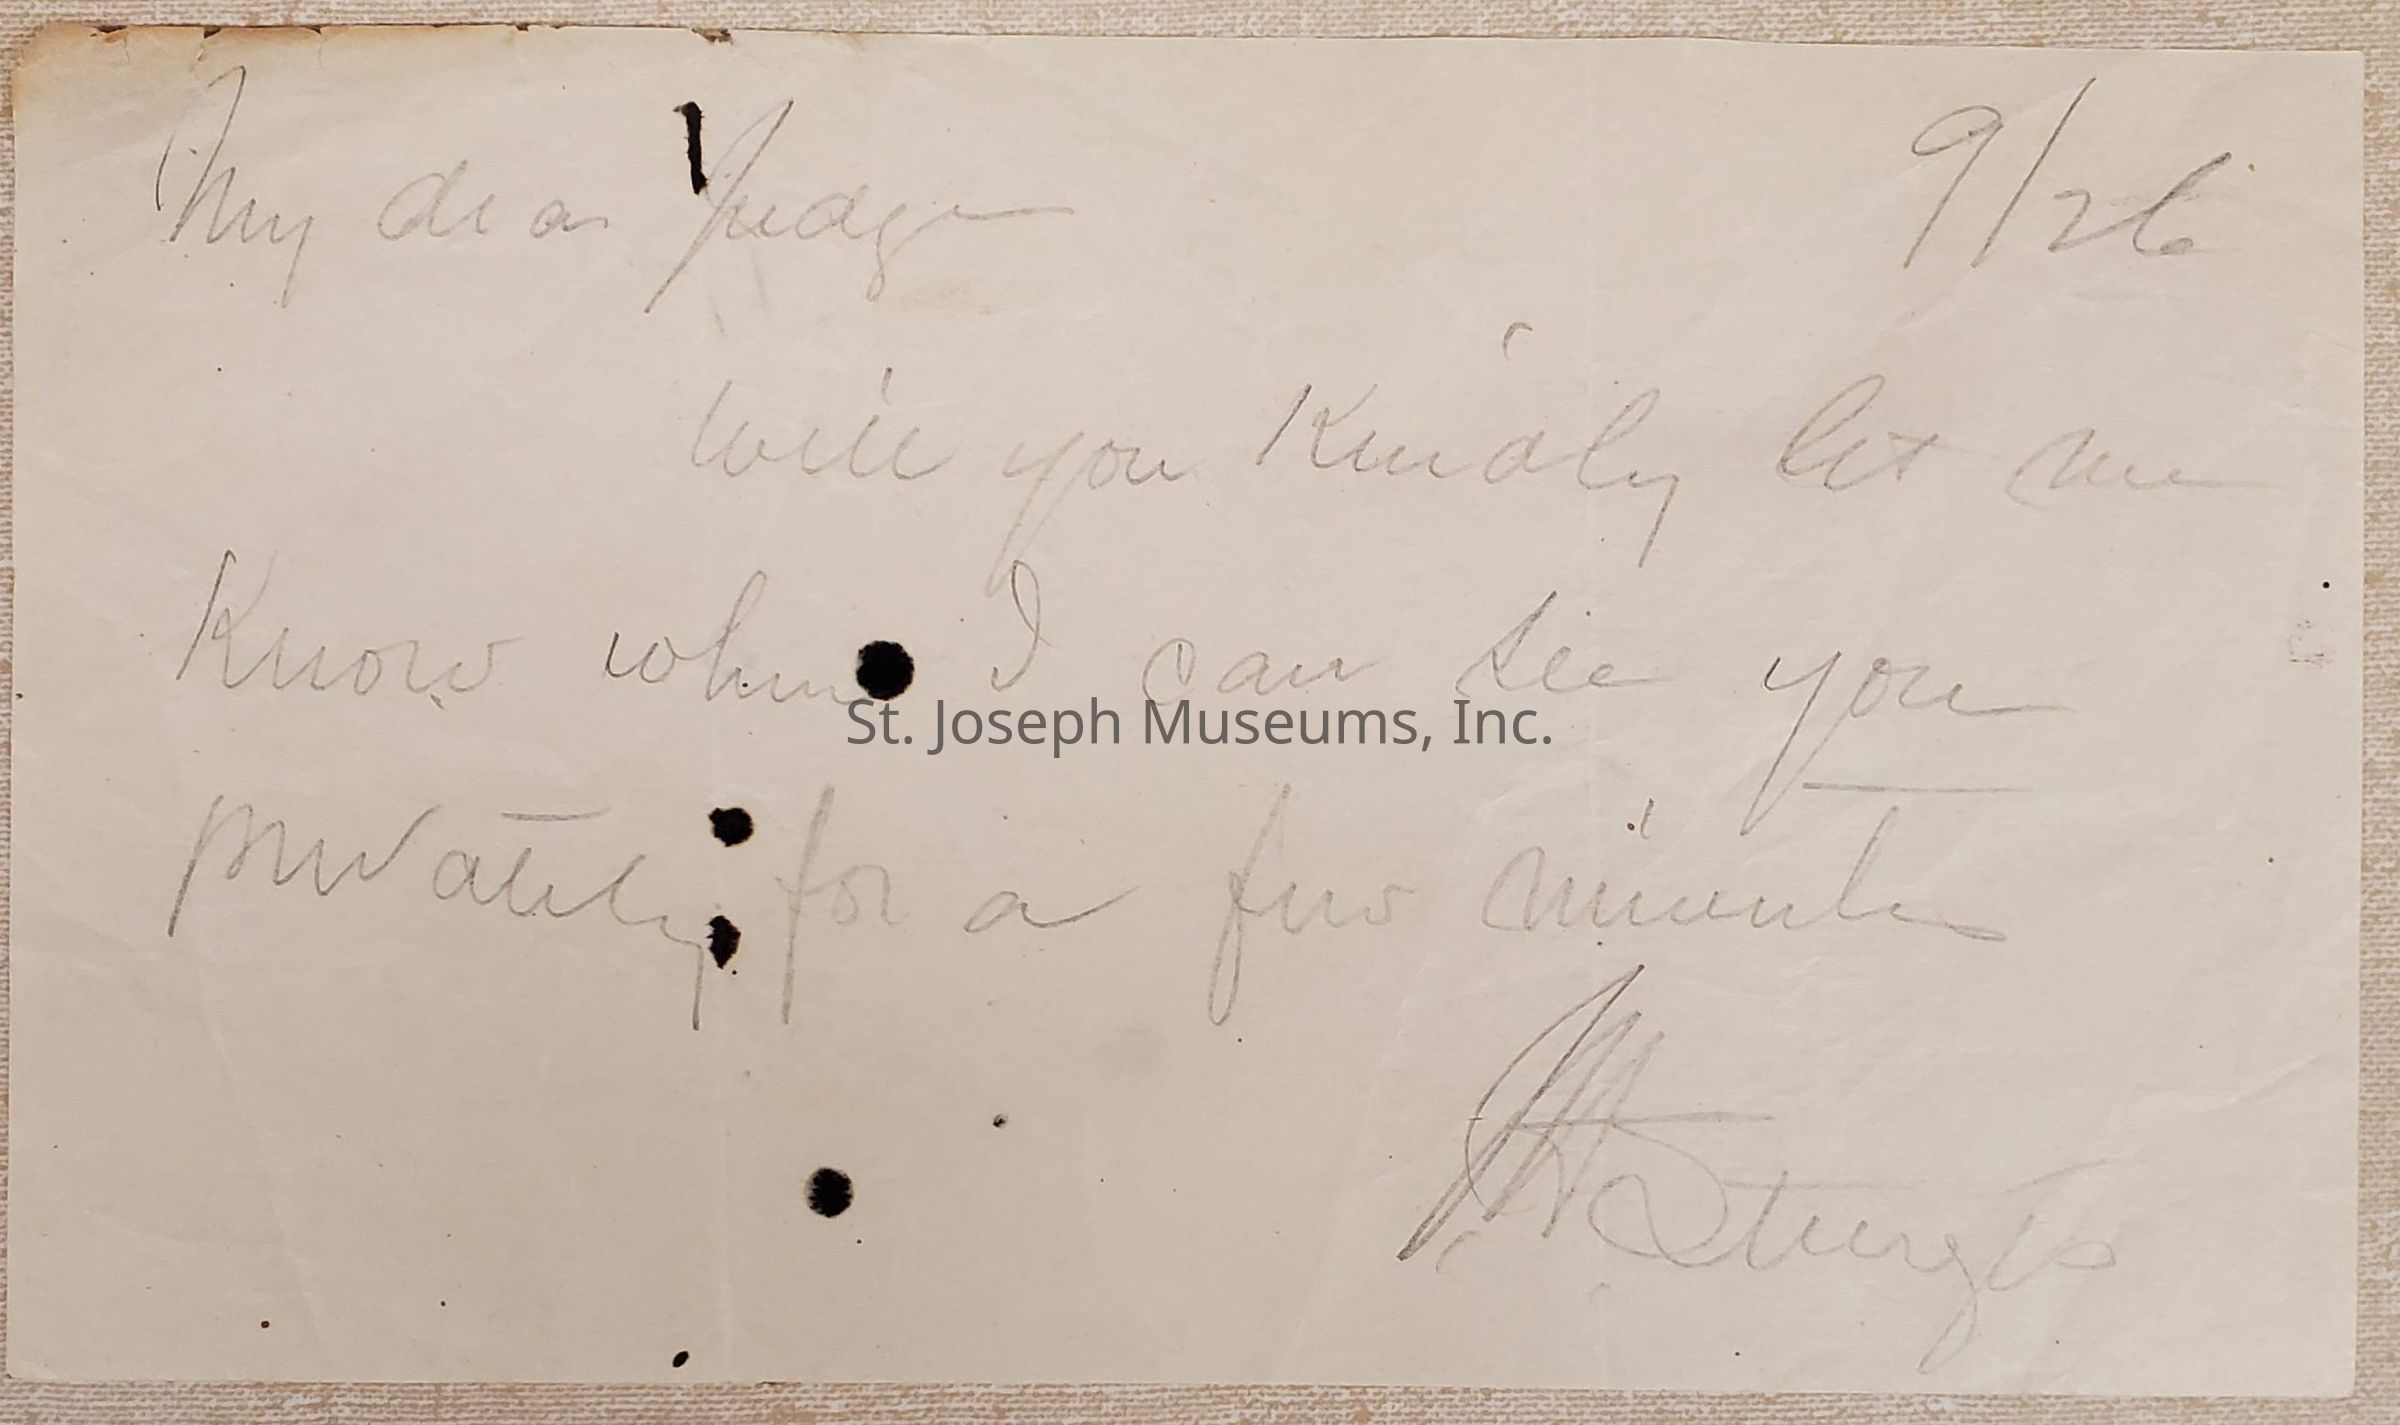 My dear Judge 9/26
Will you Kindly let me
Know when I can see you
St. Joseph Museums, Inc.
privately for a few minutes
Sturgis